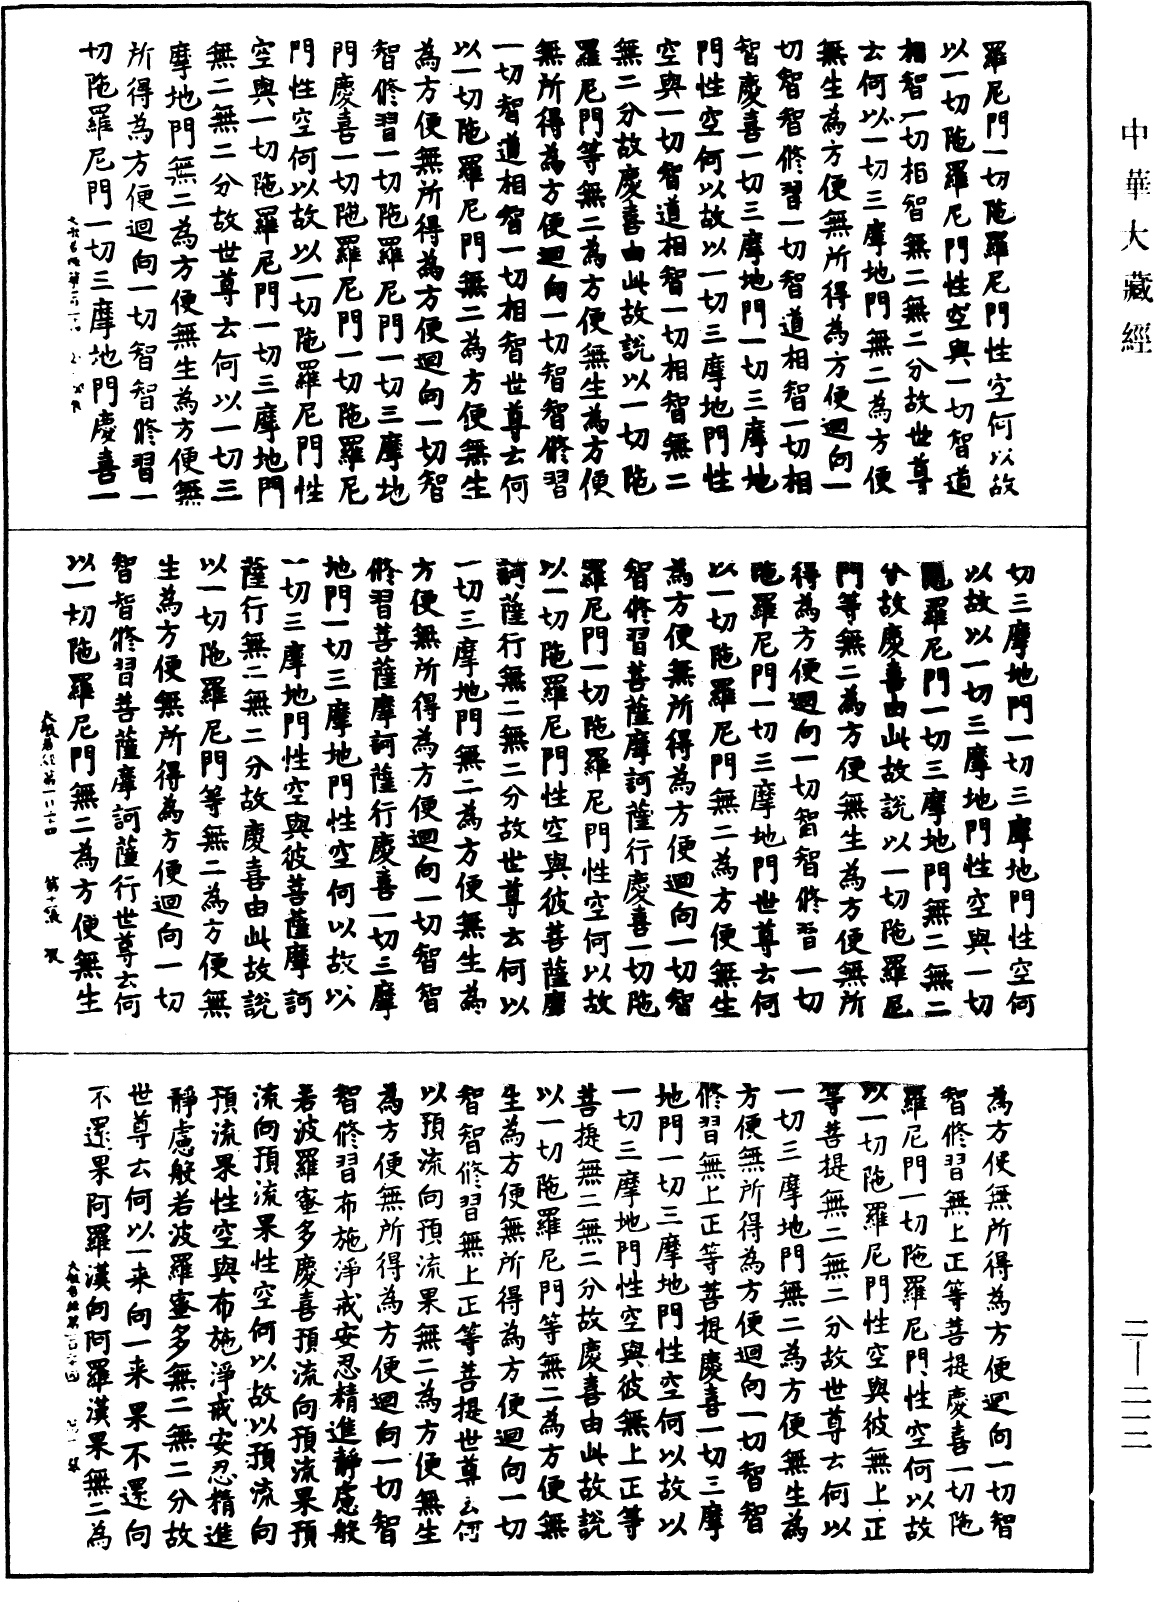 中華大藏經
羅尼門一切陁羅尼門性空何以故
以一切陁羅尼門性空與一切智道
相智一切相智無二無二分故世尊
云何以一切三摩地門無二為方便
無生為方便無所得為方便迴向一
切智智修習一切智道相智一切相
智慶喜一切三摩地門一切三摩地
門性空何以故以一切三摩地門性
空與一切智道相智一切相智無二
無二分故慶喜由此故說以一切陁
羅尼門等無二為方便無生為方便
無所得為方便迴向一切智智修習
一切智道相智一切相智世尊云何
以一切陁羅尼門無二為方便無生
為方便無所得為方便迴向一切智
智修習一切陁羅尼門一切三摩地
門慶喜一切陁羅尼門一切陁羅尼
門性空何以故以一切陁羅尼門性
空與一切陁羅尼門一切三摩地門
無二無二分故世尊云何以一切三
摩地門無二為方便無生為方便無
所得為方便迴向一切智智修習一
切陁羅尼門一切三摩地門慶喜一
切三摩地門一切三摩地門性空何
以故以一切三摩地門性空與一切
陁羅尼門一切三摩地門無二無二
分故慶喜由此故說以一切陁羅尼
門等無二為方便無生為方便無所
得為方便迴向一切智智修習一切
陁羅尼門一切三摩地門世尊云何
以一切陁羅尼門無二為方便無生
為方便無所得為方便迴向一切智
智修習菩薩摩訶薩行慶喜一切陁
羅尼門一切陁羅尼門性空何以故
以一切陁羅尼門性空與彼菩薩摩
訶薩行無二無二分故世尊云何以
一切三摩地門無二為方便無生為
方便無所得為方便迴向一切智智
修習菩薩摩訶薩行慶喜一切三摩
地門一切三摩地門性空何以故以
一切三摩地門性空與彼菩薩摩訶
薩行無二無二分故慶喜由此故說
以一切陁羅尼門等無二為方便無
生為方便無所得為方便迴向一切
智智修習菩薩摩訶薩行世尊云何
以一切陁羅尼門無二為方便無生
為方便無所得為方便迴向一切智
智修習無上正等菩提慶喜一切陁
羅尼門一切陁羅尼門性空何以故
以一切陁羅尼門性空與彼無上正
等菩提無二無二分故世尊云何以
一切三摩地門無二為方便無生為
方便無所得為方便迴向一切智智
修習無上正等菩提慶喜一切三摩
地門一切三摩地門性空何以故以
一切三摩地門性空與彼無上正等
菩提無二無二分故慶喜由此故說
以一切陁羅尼門等無二為方便無
生為方便無所得為方便迴向一切
智智修習無上正等菩提世尊云何
以預流向預流果無二為方便無生
為方便無所得為方便迴向一切智
智修習布施淨戒安忍精進靜慮般
若波羅蜜多慶喜預流向預流果預
流向預流果性空何以故以預流向
預流果性空與布施淨戒安忍精進
靜慮般若波羅蜜多無二無二分故
世尊云何以一来向一来果不還向
不還果阿羅漢向阿羅漢果無二為
二—二一二